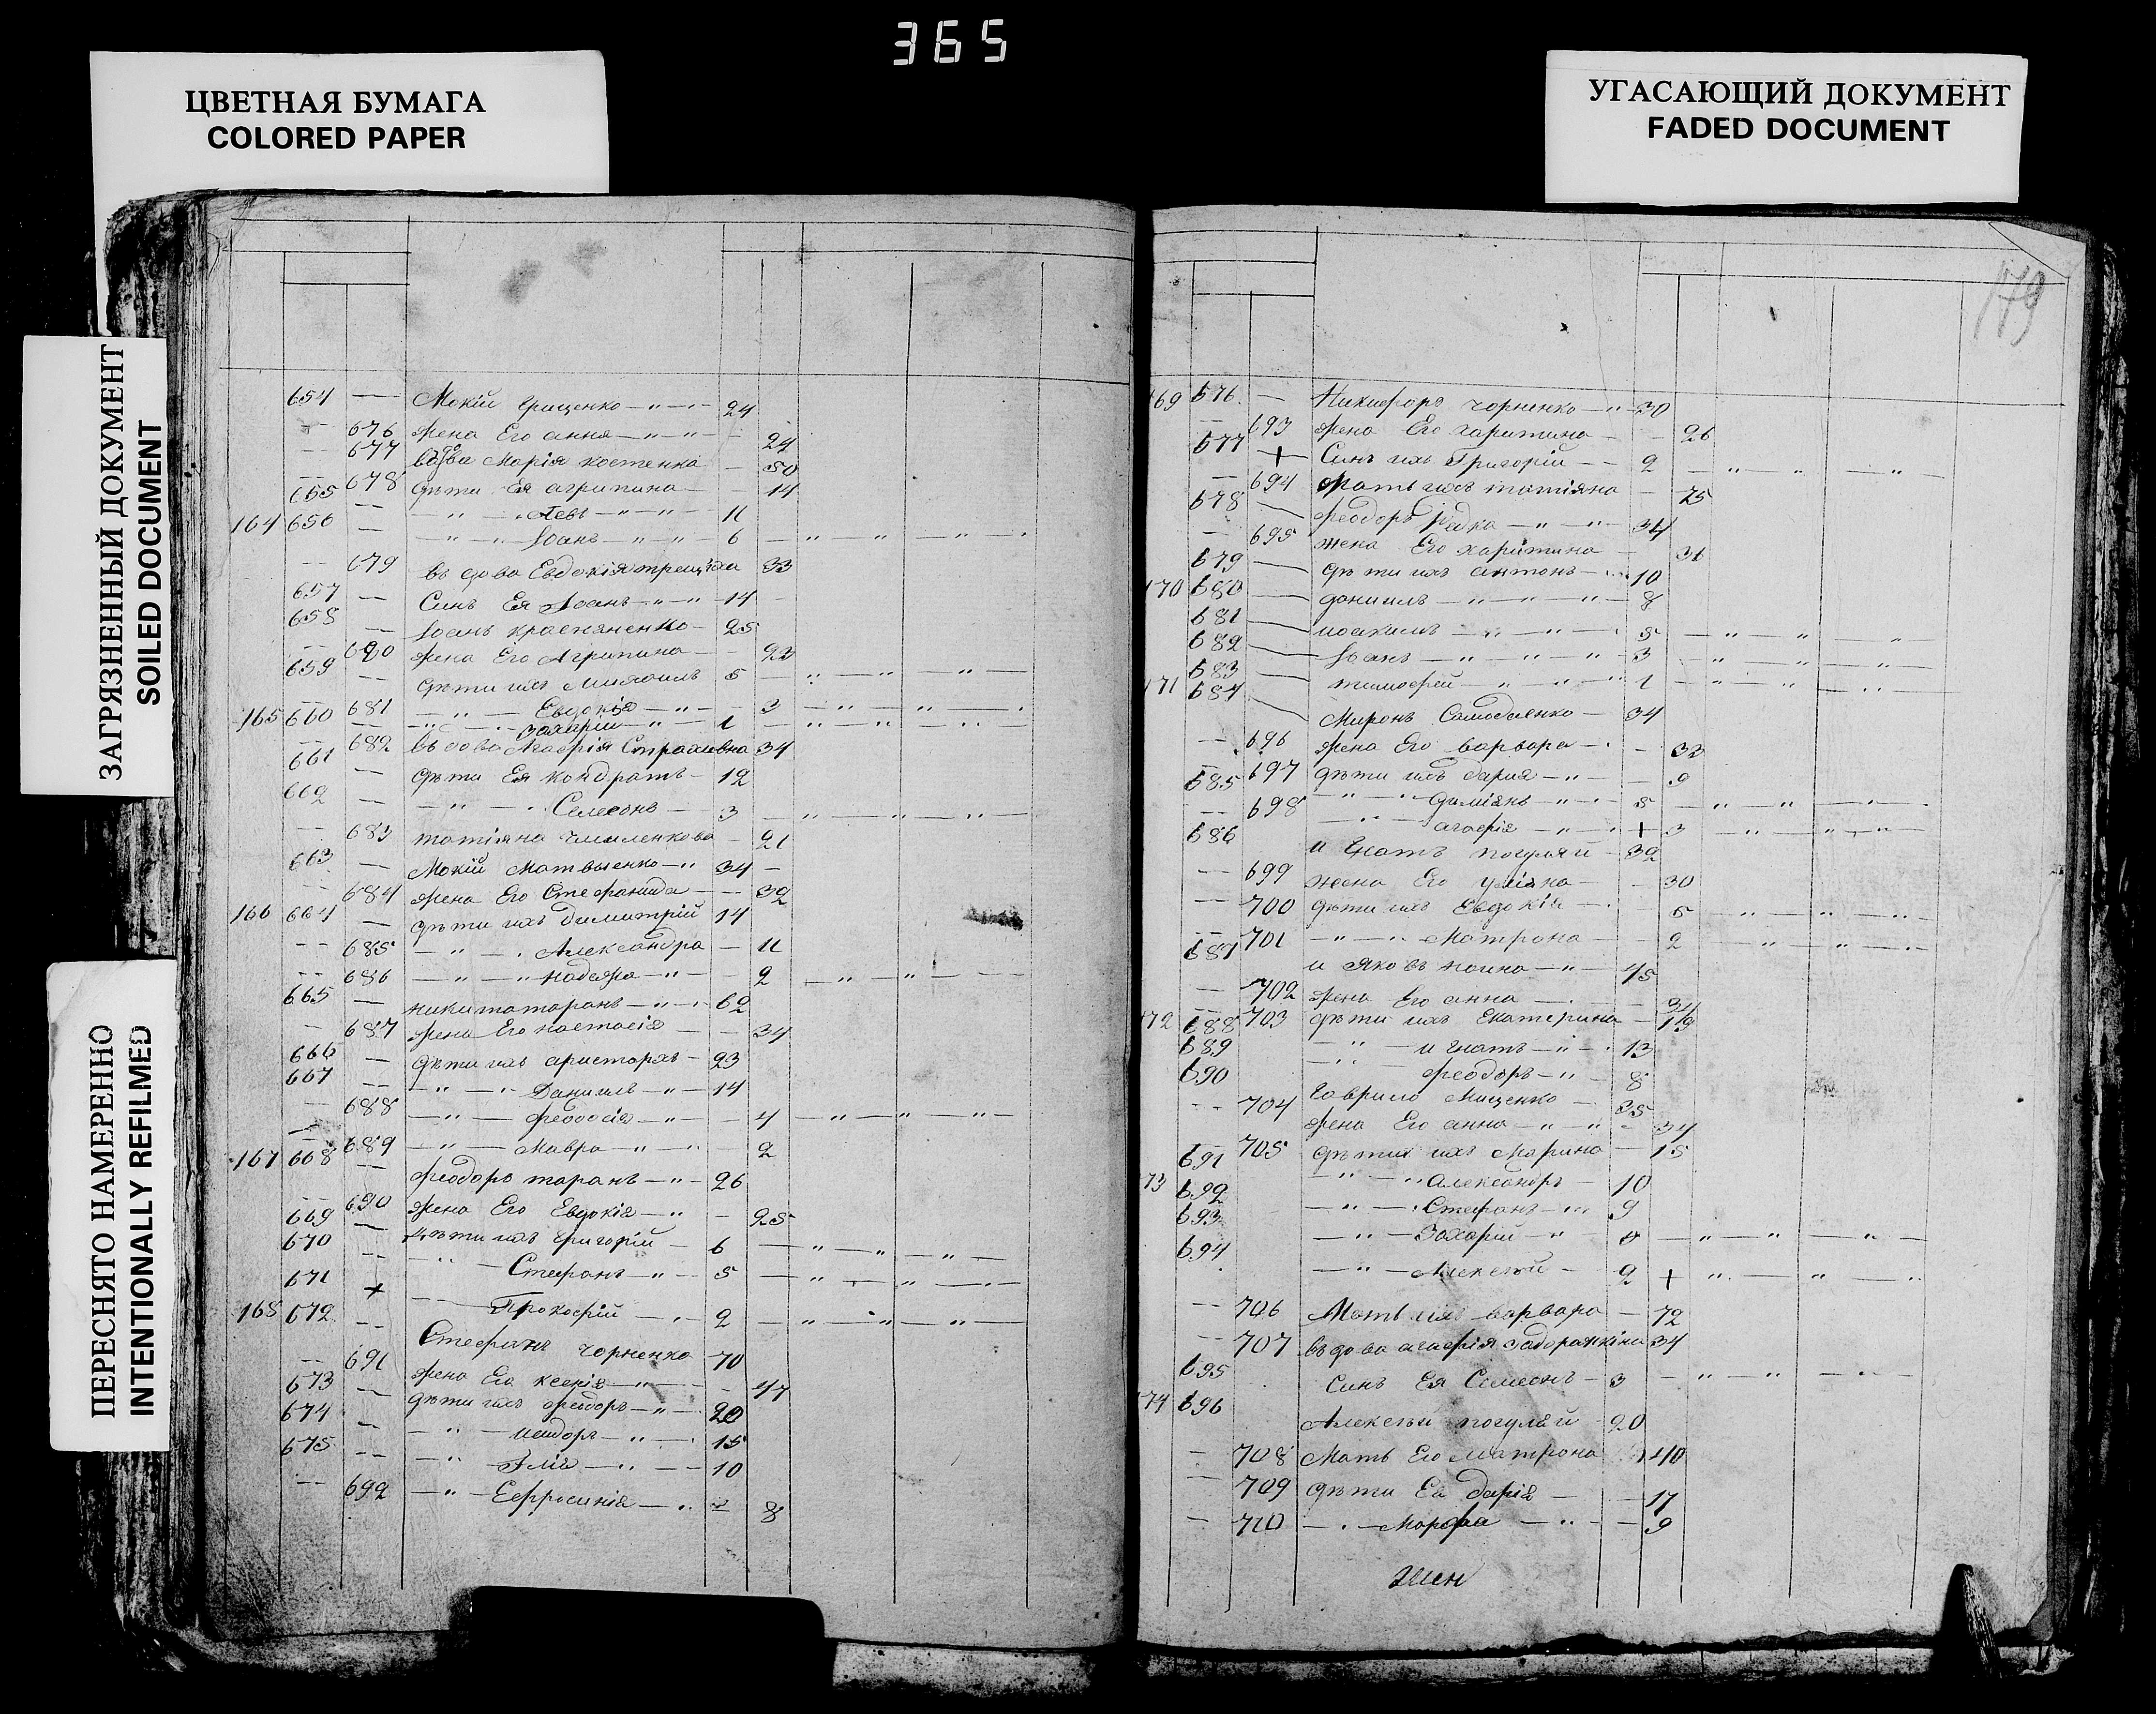 365
ЦВЕТНАЯ БУМАГА
COLORED PAPER
УГАСАЮЩИЙ ДОКУМЕНТ
FADED DOCUMENT
ЗАГРЯЗНЕННЫЙ ДОКУМЕНТ
SOILED DOCUMENT
ПЕРЕСНЯТО НАМЕРЕННО
INTENTIONALLY REFILMED
654 — Мокій Грищенко 24
676 жена Его анна 24
677 вдова Марія костенка 50
678 дѣти Ея агрипина 14
655 — Левъ 11
164 656 — Іоанъ 6
679 въдова Евдокія трещѣха 33
657 — Синъ Ея Іоанъ 14
658 — Іоанъ красняненко 25
680 жена Его Агрипина 23
659 — дѣти ихъ Михаилъ 5
681 Евдокія 3
165 660 — Захарій 1
682 въдова Агафія 34
661 — дѣти Ея кондратъ 12
662 — Семеонъ 3
683 татіяна 21
663 — Мокій Матвыенко 34
684 жена Его Стефанида 32
166 664 — дѣти ихъ димитрій 14
685 Александра 11
686 надежа 2
665 — никита таранъ 62
687 жена Его настасія 34
666 — дѣти ихъ аристархъ 23
667 — Даниилъ 14
688 феодосія 4
689 Мавра 2
167 668 — феодоръ таранъ 26
690 жена Его Евдокія 25
669 — дѣти ихъ григорій 6
670 — Стефанъ 5
671 + Прокофій 2
168 672 — Стефанъ чорненко 70
691 жена Его ксенія 47
673 — дѣти ихъ феодоръ 20
674 — исидоръ 15
675 — Илія 10
692 Ефросинія 8
179
169 576 — Никифоръ чорненко 30
693 жена Его харитина 26
577 + Синъ ихъ Григорій 2
694 Мать ихъ татіяна 75
678 — феодоръ 34
695 жена Его харитина 31
679 — дѣти ихъ антонъ 10
170 680 — даниилъ 8
681 — иоакимъ 5
682 — Іоанъ 3
683 — тимофей 1
171 684 — Миронъ Самойленко 34
696 жена Его варвара 32
697 дѣти ихъ дарія 9
685 даміянъ 5
698 агафія + 3
686 игнатъ погуляй 32
699 жена Его уліяна 30
700 дѣти ихъ Евдокія 5
701 Матрона 2
687 и Яковъ 45
702 жена Его анна 34
703 дѣти ихъ Екатерина 19
172 688 игнатъ 13
689 феодоръ 8
690 гаврило Мищенко 35
704 жена Его анна 34
705 дѣти ихъ Марина 15
691 Александръ 10
173 692 Стефанъ 9
693 Захарій
694 Алексѣй 2 +
706 Мать ихъ варвара 72
707 въдова агафія 34
695 Синъ Ея Семеонъ 3
174 696 Алексѣй погуляй 20
708 Мать Его Матрона 40
709 дѣти Ея дарія 17
710 Марфа 9